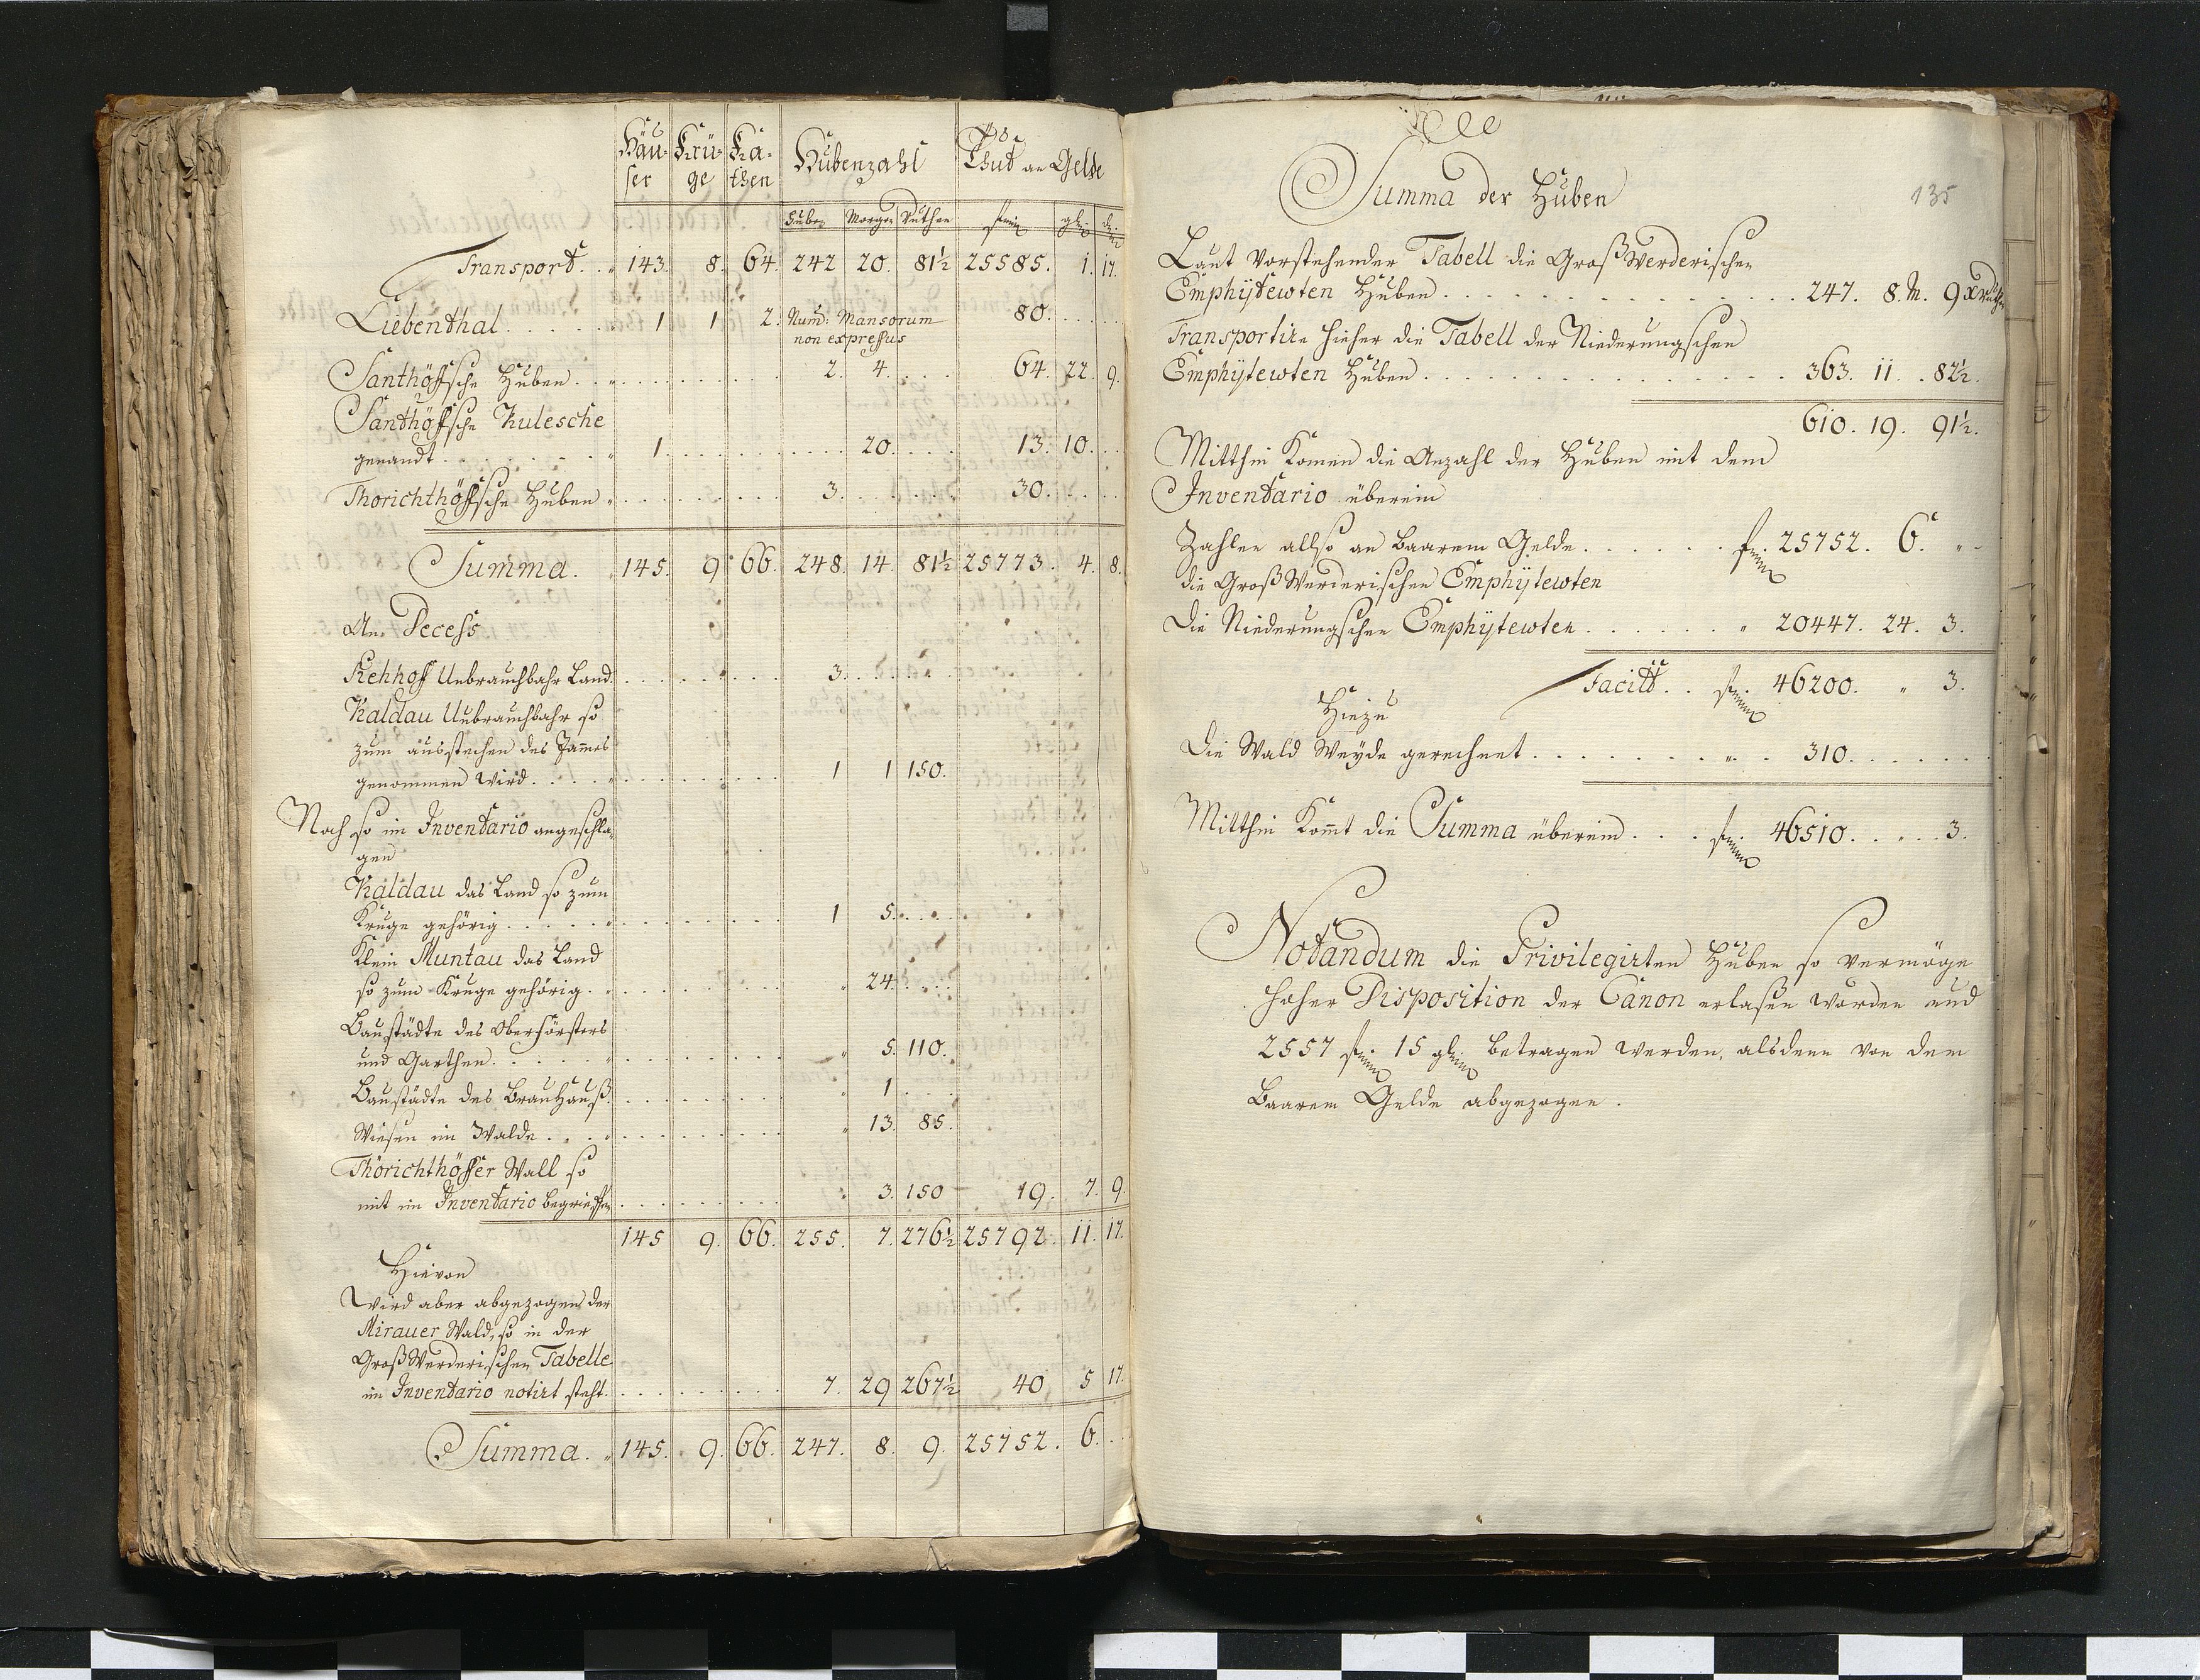 Häu- Krü- Ka- Hubenzahl Thut an Gelde
ser ge then
Huben Morgen Ruthen
Transport . . 143. 8. 64. 242 20. 81½ 25585. 1. 17.
Liebenthal . . . . . 1 1 2. Num: Mansorum 80. . . .
non expressus
Santhöffsche Huben . . . . . . . 2. 4. . . . 64. 22. 9.
Santhöffsche Kulesche
genandt . . . . . . 1. . . . . . . 20. . . . 13. 10. . .
Thorichthöffsche Huben . . . . . . 3. . . . . . 30. . . .
Summa. 145. 9. 66. 248. 14. 81½ 25773. 4. 8.
An Decess
Kehhoff Unbrauchbahr Land . . . . . . 3. . . . .
Kaldau Unbrauchbahr so
zum ausstechen des Dammes
genommen wird . . . . . . . . . 1 1 150.
Noch so im Inventario angeschla-
gen
Kaldau das Land so zum
Kruge gehörig . . . . . . . . . 1 5. . . .
Klein Muntau das Land
so zum Kruge gehörig . . . . . . . . 24. . . .
Baustädte des Oberförsters
und Garthen . . . . . . . . . 5. 110.
Baustädte des Brauhauß . . . . . . . 1 . . .
Wiesen im Walde . . . . . . . . 13. 85.
Thorichthöffer Wall so
mit im Inventario begrieffen . . . . . . . 3. 150 – 19. 7. 9.
145 9. 66. 255. 7. 276½ 25792. 11. 17.
Hievon
Wird aber abgezogen der
Mirauer Wald, so in der
Groß Werderischen Tabelle
im Inventario notirt steht . . . . . . . 7. 29 267½ 40 5 17.
Summa. 145. 9. 66. 247. 8. 9. 25752. 6. . .
Summa der Huben 135
Laut Vorstehender Tabell die Groß Werderischen
Emphÿtewten Huben . . . . . . . . . . 247. 8. M. 9
Transportire hieher die Tabell der Niederungschen
Emphÿtewten Huben . . . . . . . . . . 363. 11. . 82½.
610. 19. 91½.
Mitthin Komen die Anzahl der Huben mit dem
Inventario überein
Zahlen allso an baarem Gelde . . . . . . 25752. 6. " -
die Groß Werderischen Emphÿtewten
Die Niederungschen Emphÿtewten . . . . . . " 20447. 24. 3.
Facitt . . 46200. " 3.
Hiezu
Die Wald Weyde gerechnet . . . . . . . " . . 310. . . . . .
Mitthin Komt die Summa überein . . . 46510. . " . . 3.
Notandum die Privilegirten Huben so vermöge
hoher Disposition der Canon erlaßen worden und
2557 15 betragen werden, alsdenn von dem
Baarem Gelde abgezogen.